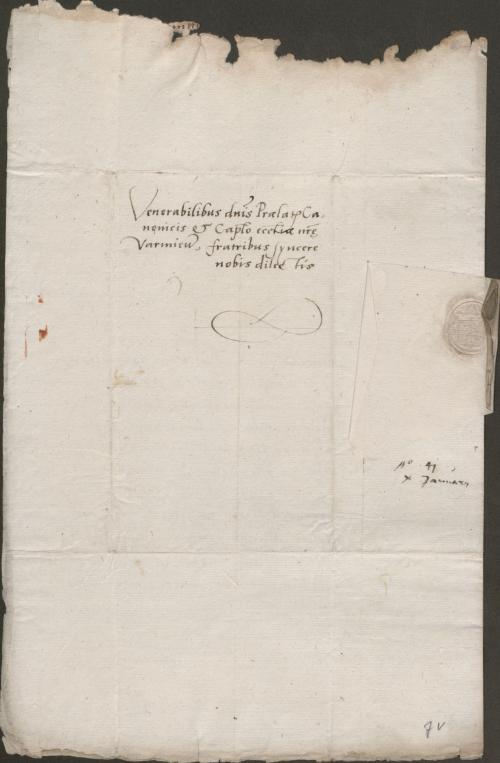 Venerabilibus dnis Prælatis Ca-
nonicis et Caplo eccliæ nrę
Varmien̄. fratribus syncere
nobis dilectis
Aº 41
X Januarii